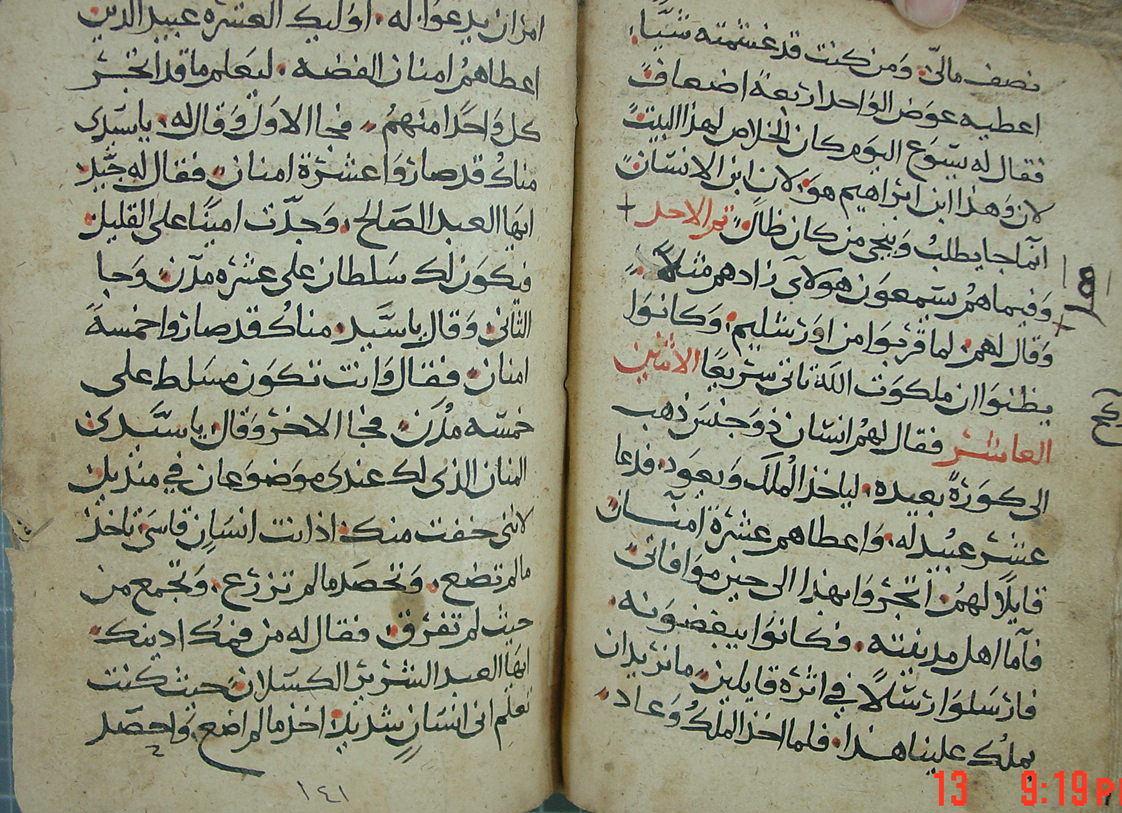 نصف مالي. ومن كنت قد غشمته شيا.
اعطيه عوض الواحد اربعة اضعاف
فقال له يسوع اليوم كان الخلاص لهذا البيت
لان وهذا ابن ابراهيم هو. لان ابن الانسان
انما جا يطلب وينجى من كان ظال. تم الاحد +
وفيما هم يسمعون هولاى زادهم مثلا
وقال لهم. لما قربوا من اورشليم. وكانوا
يظنوا ان ملكوت الله تاتى سريعا الاثنين
العاشر فقال لهم انسان ذو جنس ذهب
الى كورة بعيده. لياخذ الملك ويعود. فدعا
عشر عبيد له. واعطاهم عشرة امنان
قايلا لهم. اتجروا بهذا الى حين موافاتى
فاما اهل مدينته. فكانوا يبغضونه.
فارسلوا رسلا في اثره قايلين. ما نريد ان
يملك علينا هذا. فلما اخذ الملك وعاد
امر ان يدعوا له. اوليك العشره عبيد الدين
اعطاهم امنان الفضه. ليعلم ما قد اتجر
كل واحدا منهم. فجا الاول وقال له. ياسيدى
مناك قد صاروا عشرة امنان. فقال له جيد
ايها العبد الصالح. وجدت امينا على القليل
فيكون لك سلطان على عشره مدن. وجا
الثانى. وقال ياسيد. مناك قد صاروا خمسة
امنان. فقال وانت تكون مسلط على
خمسه مدن. فجا الاخر وقال ياسيدى
المنان الذى لك عندى موضوعان في منديل
لاننى خفت منك. اذ انت انسان قاسى تاخذ
ما لم تضع. وتحصد ما لم تزرع. وتجمع من
حيث لم تفرق. فقال له من فمك ادينك
ايها العبد الشرير الكسلان. بحيث كنت
تعلم انى انسان شديد. اخذ ما لم اضع. واحصد
١٤١
13 9:19